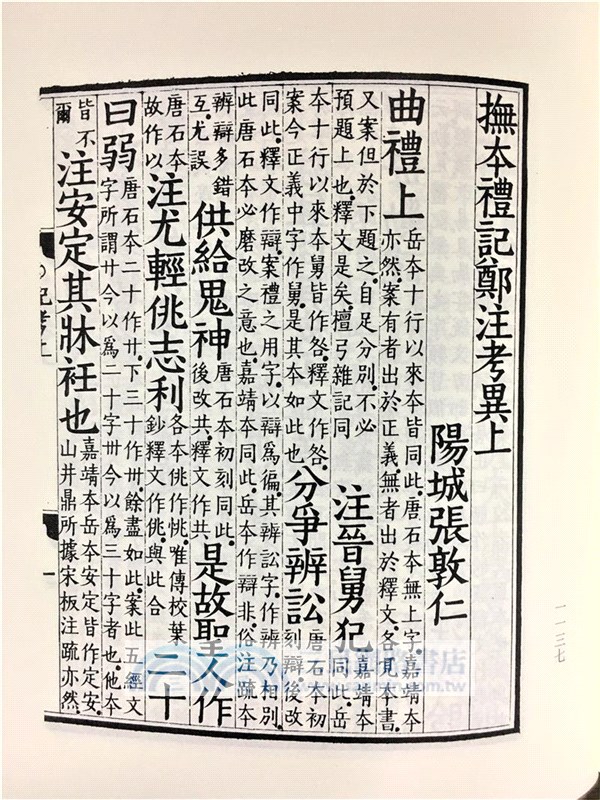 撫本禮記鄭注考異上
陽城張敦仁
曲禮上 岳本十行以來本皆同此唐石本無上字嘉靖本
亦然案有者出於正義無者出於釋文各見本書
又案但於下題之自足分別不必
預題上也釋文是矣檀弓雜記同
注晉舅犯 嘉靖本
同此岳
本十行以來本舅皆作咎釋文作咎
案今正義中字作舅是其本如此也
分爭辨訟 唐石本初
刻辯後改
同此釋文作辯案禮之用字以辯爲徧其辨訟字作辨乃相別
此唐石本必磨改之意也嘉靖本同此岳本作辯非俗注疏本
辨辯多錯
互尤誤
供給鬼神 唐石本初刻同此
後改共釋文作共
是故聖人作
唐石本
故作以
注尤輕佻志利 各本佻作恌唯傳校葉
鈔釋文作佻與此合
二十
曰弱 唐石本二十作廾下三十作卅餘盡如此案此五經文
字所謂廾今以爲二十字卅今以爲三十字者也他本
皆不
爾
注安定其牀衽也 嘉靖本岳本安定皆作定安
山井鼎所據宋板注疏亦然
一一三七